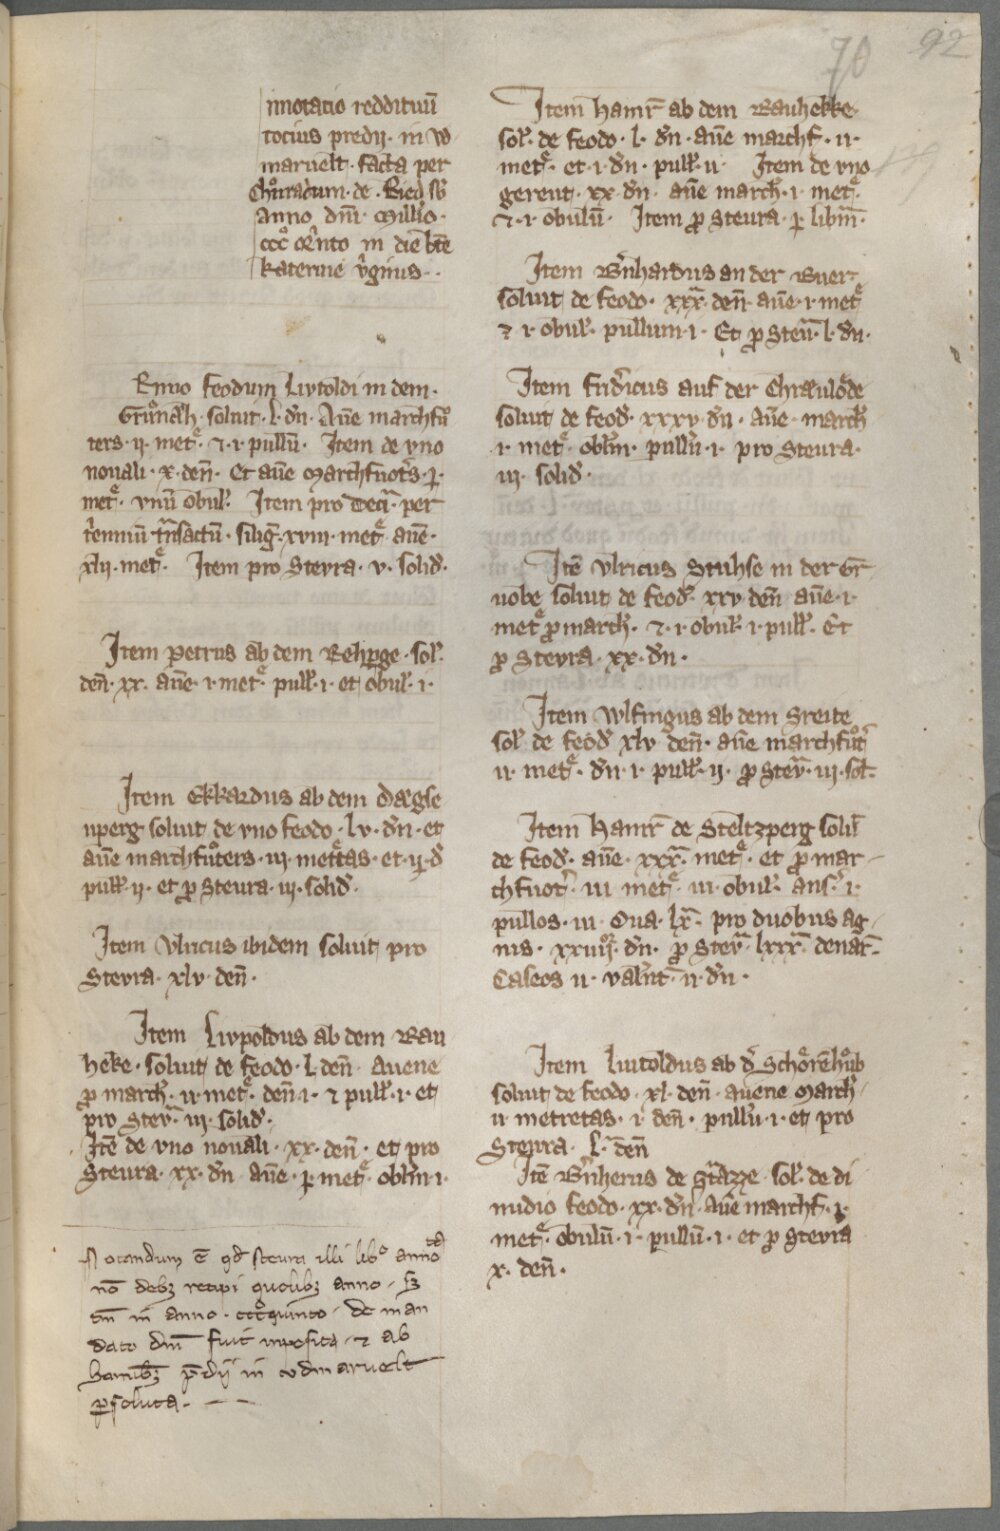 70 92
nnotacio reddituū
tocius predij · in w
maruelt · facta per
Chůradum · de ·
anno dn̄i · Millīo ·
cccͦ q̄nto in die bt̄e
katerine v̓ginis ·
Primo feodum Livtoldi in dem ·
Grůnd̓h · soluit · l · dn̄ · Aūe marchfů
ters · ij · metͤ · ⁊ · i · pullū · Item de vno
nouali · x · den̄ · Et aūe Marchfuot̓s · j ·
metͤ · vnū obul̓ · Item pro Deci̅ · per
t̓ennium t̄nsactū · silig̓ · xviii · metͤ aūe ·
xlij · metͤ · Item pro Stevra · v · solid̓ ·
Item Petrus ab dem Rehp̱ge · sol̓ ·
den̄ · xx · aūe · i · metͤ · pull̓ · i · et obul̓ · i ·
Item Ekkardus ab dem Dægse
nperg soluit de vno feodo · lv · dn̄ · et
aūe marchfůters · iij · metͤtas · et · ij · d̓
pull̓ · ij · et ꝓ Steura · iij · solid̓ ·
Item Vlricus ibidem soluit pro
Stevra · xlv · den̄ ·
Item Livpoldus ab dem Rau
heke · soluit de feodo · l · den̄ · Avene
ꝓ march̓ · ii · metͤ · den̄ · i · ⁊ pull̓ · i · et
pro Stev̄ · iij · solid̓ ·
Itē de vno nouali · xx · den̄ · et pro
Steura · xx · dn̄ aūe · j · metͤ · obl̄m · i ·
Notandum ē qd̓ steura illi
nō debꝫ recipi quolibꝫ anno · sꝫ
tm̄ in anno · cccͦ quinto · de man
dato dn̄i fuit inposita · ⁊ ab
homībꝫ p̄dij in wdmaruelt
ꝑsoluta ·
Item Hainr̄ ab dem Rauhekke ·
sol̓ · de feodo · l · dn̄ · aūe marchf · ii ·
metͤ · et · i · dn̄ · pull̓ · ii · Item de vno
gereut · xx · dn̄ · aūe march̓ · i · metͤ ·
⁊ · i · obulū · Item ꝓ Steura · j · libr̄m ·
Item Bn̓hardus an der Wuer ·
soluit de feodo · xxx · den̄ · aūe · i · metͤ
⁊ · i · obul̓ · pullum · i · Et ꝓ Steū · l · dn̄ ·
Item Frid̓icus auf der Chræulöde
soluit de feod̓ · xxxv · dn̄ · aūe · march̓
i · metͤ · obl̄m · pullū · i · pro Steura ·
iij · solid̓ ·
Itē Vlricus Stuhse in der Gr̄
uobe soluit de feod̓ · xxv · den̄ aūe · i ·
metͤ ꝓ march̓ · ⁊ · i · obul̓ · i · pull̓ · Et
ꝓ Stevra · xx · dn̄ ·
Item Wlfingus ab dem Sreite
sol̓ · de feod̓ xlv den̄ · aūe marchfůt̓
ii · metͤ · dn̄ · i · pull̓ · ij · ꝓ Stev̄ · iij · sol̓ ·
Item Hainr̄ de Steltzperg soluit
de feod̓ · aūe · xxx · metͤ · et ꝓ mar-
chfuot̓ · iii · metͤ · iii · obul̓ · ans̓ · i ·
pullos · iii · Oua · lx · pro duobus ag-
nis · xxiiij · dn̄ · ꝓ Stev̄ · lxxx · denar̄ ·
Caseos ii · val̓nt̄ · ii · dn̄ ·
Item Livtoldus ab d̓ Schörēhůb
soluit de feodo · xl · den̄ · avene March̓ ·
ii · metretas · i · den̄ · pullū · i · et pro
Stevra · l · den̄
Itē Bn̓herus de Strazze · sol̓ · de di
midio feodo · xx · dn̄ · aūe marchf · i ·
metͤ · obulū · i · pullū · i · et ꝓ Stevra
x · den̄ ·